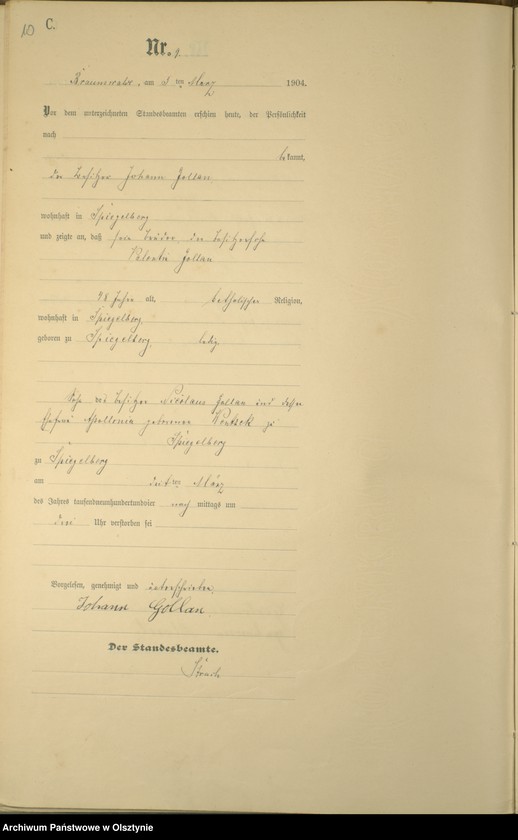 10 C.
Nr. 9.
Braunswalde, am 5 ten März 1904.
Vor dem unterzeichneten Standesbeamten erschien heute, der Persönlichkeit
nach
bekannt,
der Besitzer Johann Gollan,
wohnhaft in Spiegelberg
und zeigte an, daß sein Bruder, der Besitzersohn
Valentin Gollan
48 Jahre alt, katholischer Religion,
wohnhaft in Spiegelberg,
geboren zu Spiegelberg, ledig
Sohn des Besitzer Nicolaus Gollan und dessen
Ehefrau Apollonia geborenen
Spiegelberg
zu Spiegelberg
am dritten März
des Jahres tausendneunhundertundvier nach mittags um
drei Uhr verstorben sei
Vorgelesen, genehmigt und unterschrieben,
Johann Gollan
Der Standesbeamte.
Archiwum Państwowe w Olsztynie